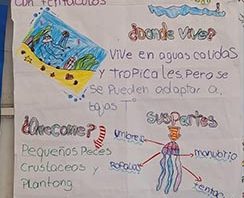 con tentaculos
¿Donde Vive?
Vive en aguas calidas
y tropicales Pero se
se Pueden adaptar a
bajas T°
¿Que come?
Pequeños Peces
Crustaceos y
Plantong
sus Partes
umbrela
manubrio
tentac